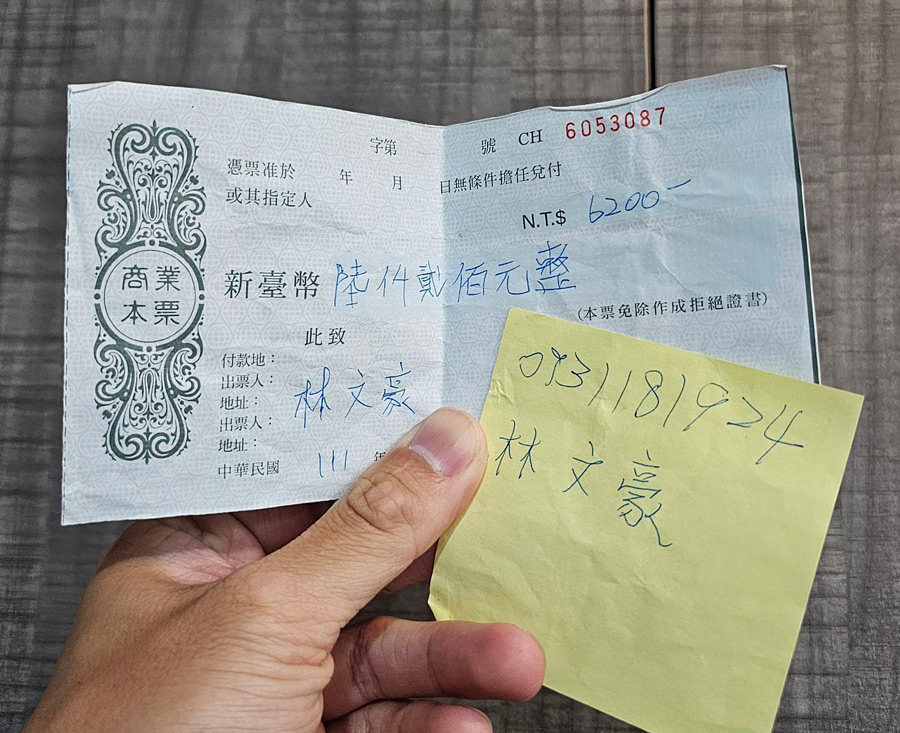 字第 號 CH 6053087
憑票准於 年 月 日無條件擔任兌付
或其指定人
N.T.$ 6200-
商業
本票
新臺幣 陸仟貳佰元整
(本票免除作成拒絕證書)
此致
付款地:
出票人:
地址: 林文豪
出票人:
地址:
中華民國 111 年
0931181924
林文豪